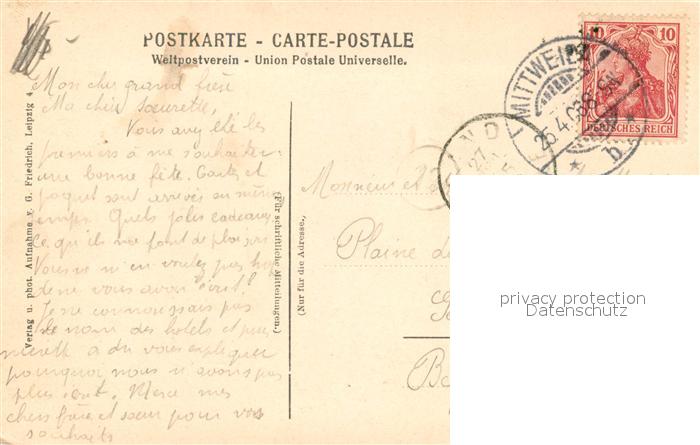 POSTKARTE - CARTE-POSTALE
Weltpostverein - Union Postale Universelle.
Mon cher grand frère
Ma chère sœurette,
Vous avez été les
premiers à me souhaiter
une bonne fête. Cartes et
paquet sont arrivés en même
temps. Quels jolis cadeaux
Ce qu'ils me font de plaisir
Vous ne m'en voulez pas
de ne vous avoir écrit.
Je ne connaissais pas
le nom des hotels et puis
a dû vous expliquer
pourquoi nous n'avons pas
plus écrit. Merci mes
chers frère et sœur pour vos
souhaits
Verlag u. phot. Aufnahme v. G. Friedrich, Leipzig 4
(Für schriftliche Mitteilungen.)
(Nur für die Adresse.)
Monsieur et
Plaine de
10 10
DEUTSCHES REICH
MITTWEIDA
25.4.08
b
GAND
27
privacy protection
Datenschutz